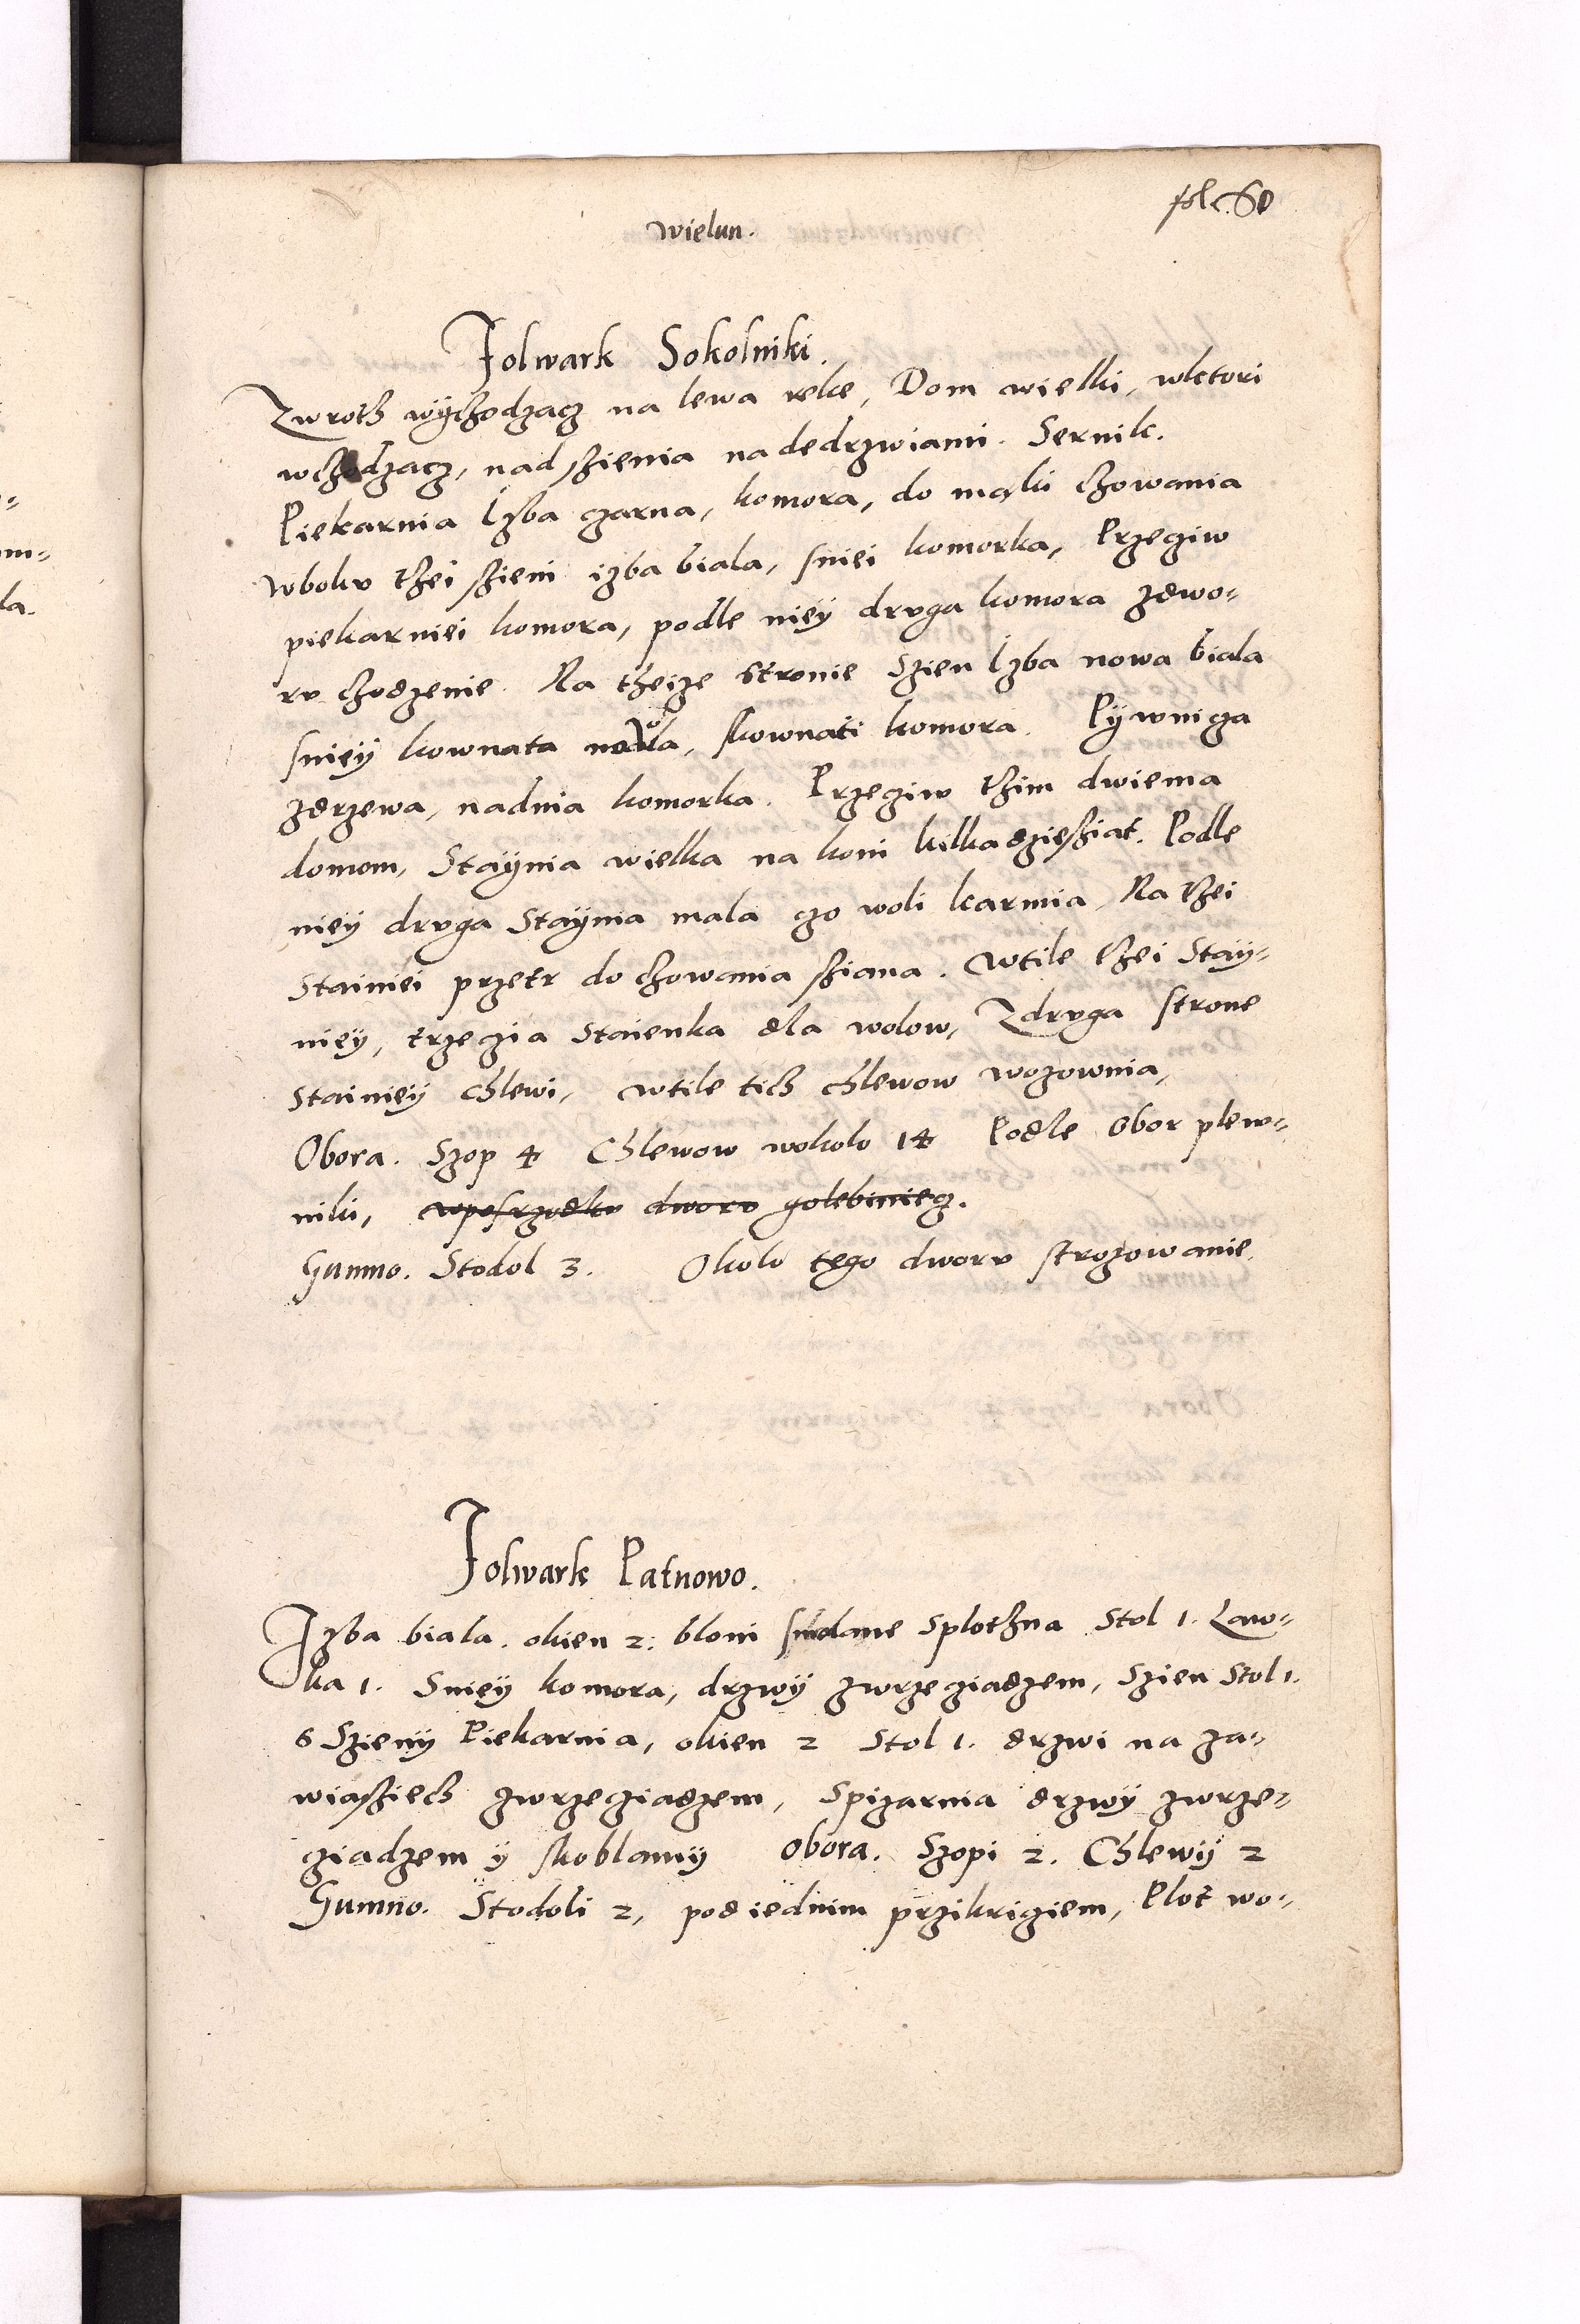 fol. 60
wielun.
Folwark Sokolniki.
Zwroth wychodzacz na lewa reke, Dom wielki, wktori
wchodzacz, nad szienia nadedrzwiami. Sernik.
Piekarnia Izba czarna, komora, do maki chowania
wboku thei szieni izba biala, sniei komorka, Przeciw
piekarniei komora, podle niey druga komora zdwo-
ru chodzenie. Na theize stronie Szien Izba nowa biala
sniey kownata nowa, skownati komora. Pywnica
zdrzewa, nadnia komorka. Przeciw thim dwiema
domom, Staynia wielka na koni kilkadziesziat. Podle
niey druga Staynia mala czo woli karmia, Na thei
Stainiei przetr do chowania sziana. wtile thei Stay-
niey, trzeczia Staienka dla wolow, Zdruga strone
Stainiey chlewi, wtile tich chlewow wozownia,
Obora. Szop 4 Chlewow wokolo 14 Podle Obor plew-
niki, wposrzodku dworu golebiniecz.
Gumno. Stodol 3. Okolo tego dworu strozowanie.
Folwark Patnowo.
Izba biala. okien 2. bloni Splothna Stol 1. Law-
ka 1. Sniey komora, drzwy zwrzecziadzem, Szien Stol 1.
S Szieny Piekarnia, okien 2 Stol 1. drzwi na za-
wiasziech zwrzecziadzem, Spizarnia drzwy zwrze-
cziadzem y skoblamy Obora. Szopi 2. Chlewy 2
Gumno. Stodoli 2, pod iednim przikriciem, Plot wo-